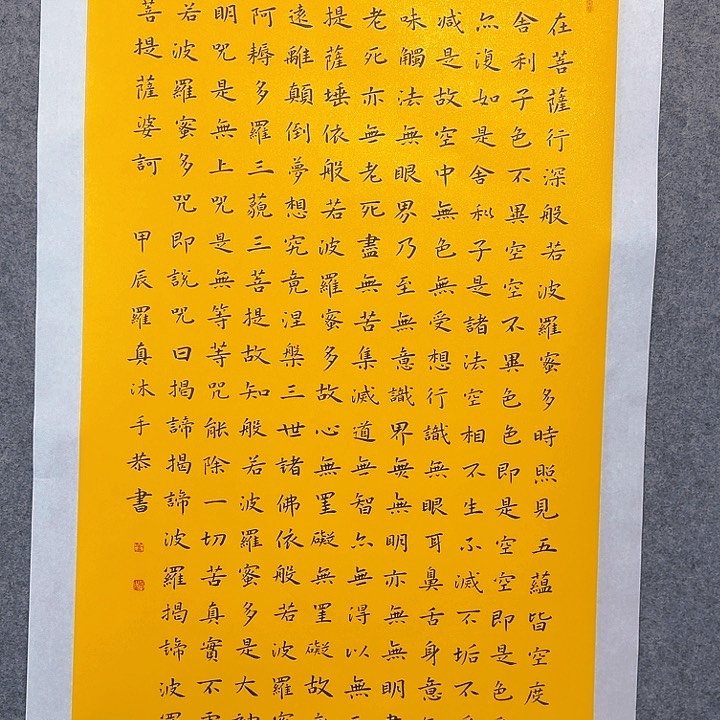 在菩薩行深般若波羅蜜多時照見五蘊皆空度
舍利子色不異空空不異色色即是空空即是色
亦復如是舍利子是諸法空相不生不滅不垢不
減是故空中無色無受想行識無眼耳鼻舌身意
味觸法無眼界乃至無意識界無無明亦無無明
老死亦無老死盡無苦集滅道無智亦無得以無
提薩埵依般若波羅蜜多故心無罣礙無罣礙故
遠離顛倒夢想究竟涅槃三世諸佛依般若波羅
阿耨多羅三藐三菩提故知般若波羅蜜多是大
明咒是無上咒是無等等咒能除一切苦真實不
若波羅蜜多咒即說咒曰揭諦揭諦波羅揭諦波
菩提薩婆訶
甲辰羅真沐手恭書